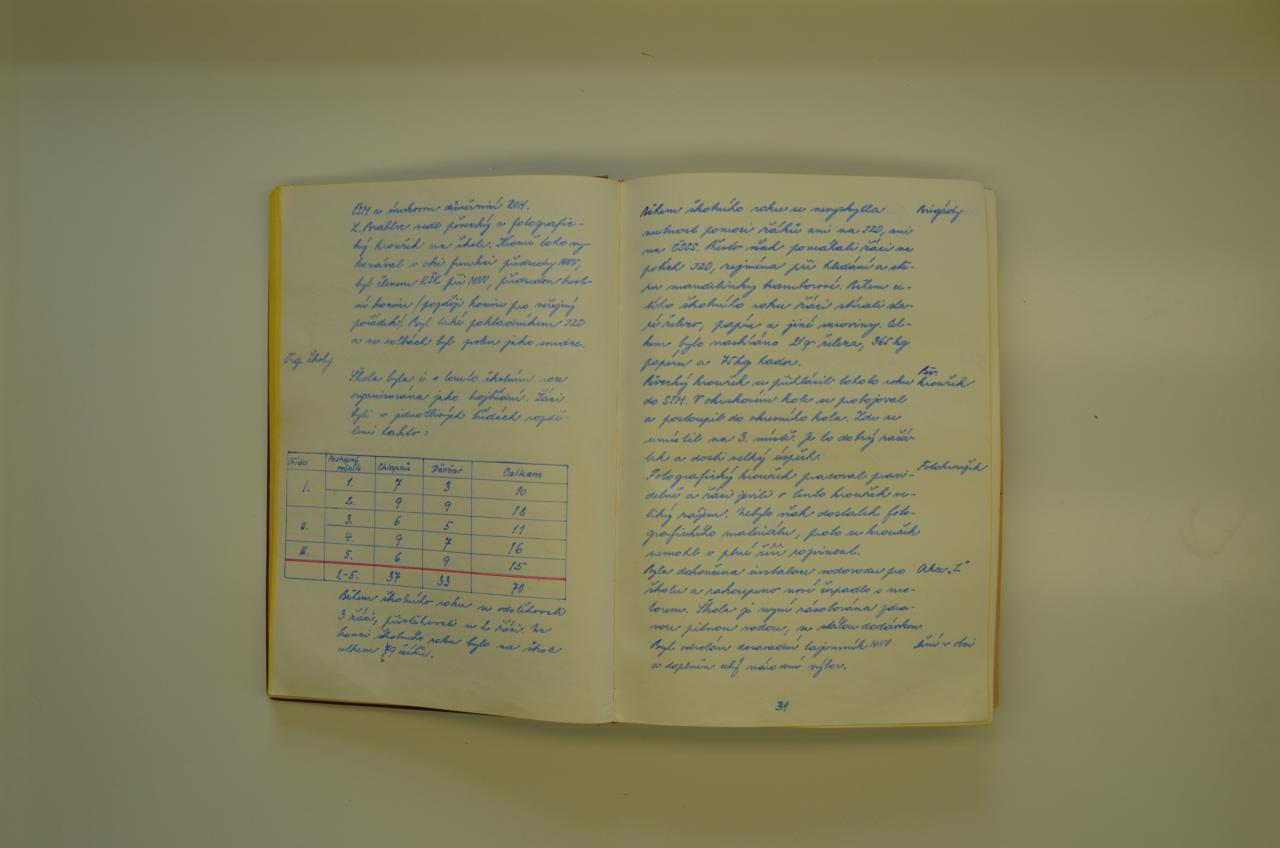 ČSM a úsekovou důvěrnicí ROH.
L. Brabler vedl pěvecký a fotografic-
ký kroužek na škole. Kromě toho vy-
konával v obci funkci předsedy MNV,
byl členem KŠK při MNV, předsedou
ní komise /později komise pro veřejný
pořádek/. Byl také pokladníkem JZD
a ve volbách byl zvolen jeho soudce.
Org. školy
Škola byla i v tomto školním roce
organisována jako trojtřídní. Žáci
byli v jednotlivých třídách rozdě-
leni takto:
Třída Postupný ročník Chlapců Děvčat Celkem
I. 1. 7 3 10
2. 9 9 18
II. 3. 6 5 11
4. 9 7 16
III. 5. 6 9 15
1.-5. 37 33 70
Během školního roku se odstěhovali
3 žáci, přistěhovali se 2 žáci. Na
konci školního roku bylo na škole
celkem žáků.
Během školního roku se nevyskytla
Brigády
nutnost pomoci žáků ani na JZD, ani
na ČSSS. Přesto však pomáhali žáci na
polích JZD, zejména při hledání a sbě-
ru mandelinky bramborové. Během ce-
lého školního roku žáci sbírali sta-
ré železo, papír a jiné suroviny. Cel-
kem bylo nasbíráno 21 q železa, 365 kg
papíru a 75 kg hader.
Pěvecký kroužek se přihlásil tohoto roku
Pěv. kroužek
do STM. V okrskovém kole se probojoval
a postoupil do okresního kola. Zde se
umístil na 3. místě. Je to dobrý začá-
tek a dosti velký úspěch.
Fotografický kroužek pracoval pravi-
Fotokroužek
delně a žáci jevili o tento kroužek ve-
liký zájem. Nebylo však dostatek foto-
grafického materiálu, proto se kroužek
nemohl v plné šíři rozvinout.
Byla dokončena instalace vodovodu pro
Akce „Z“
školu a zakoupeno nové čerpadlo s mo-
torem. Škola je nyní zásobována zdra-
vou pitnou vodou, se stálou dodávkou.
Byl odvolán dosavadní tajemník MNV
Dění v obci
a doplněn celý národní výbor.
31